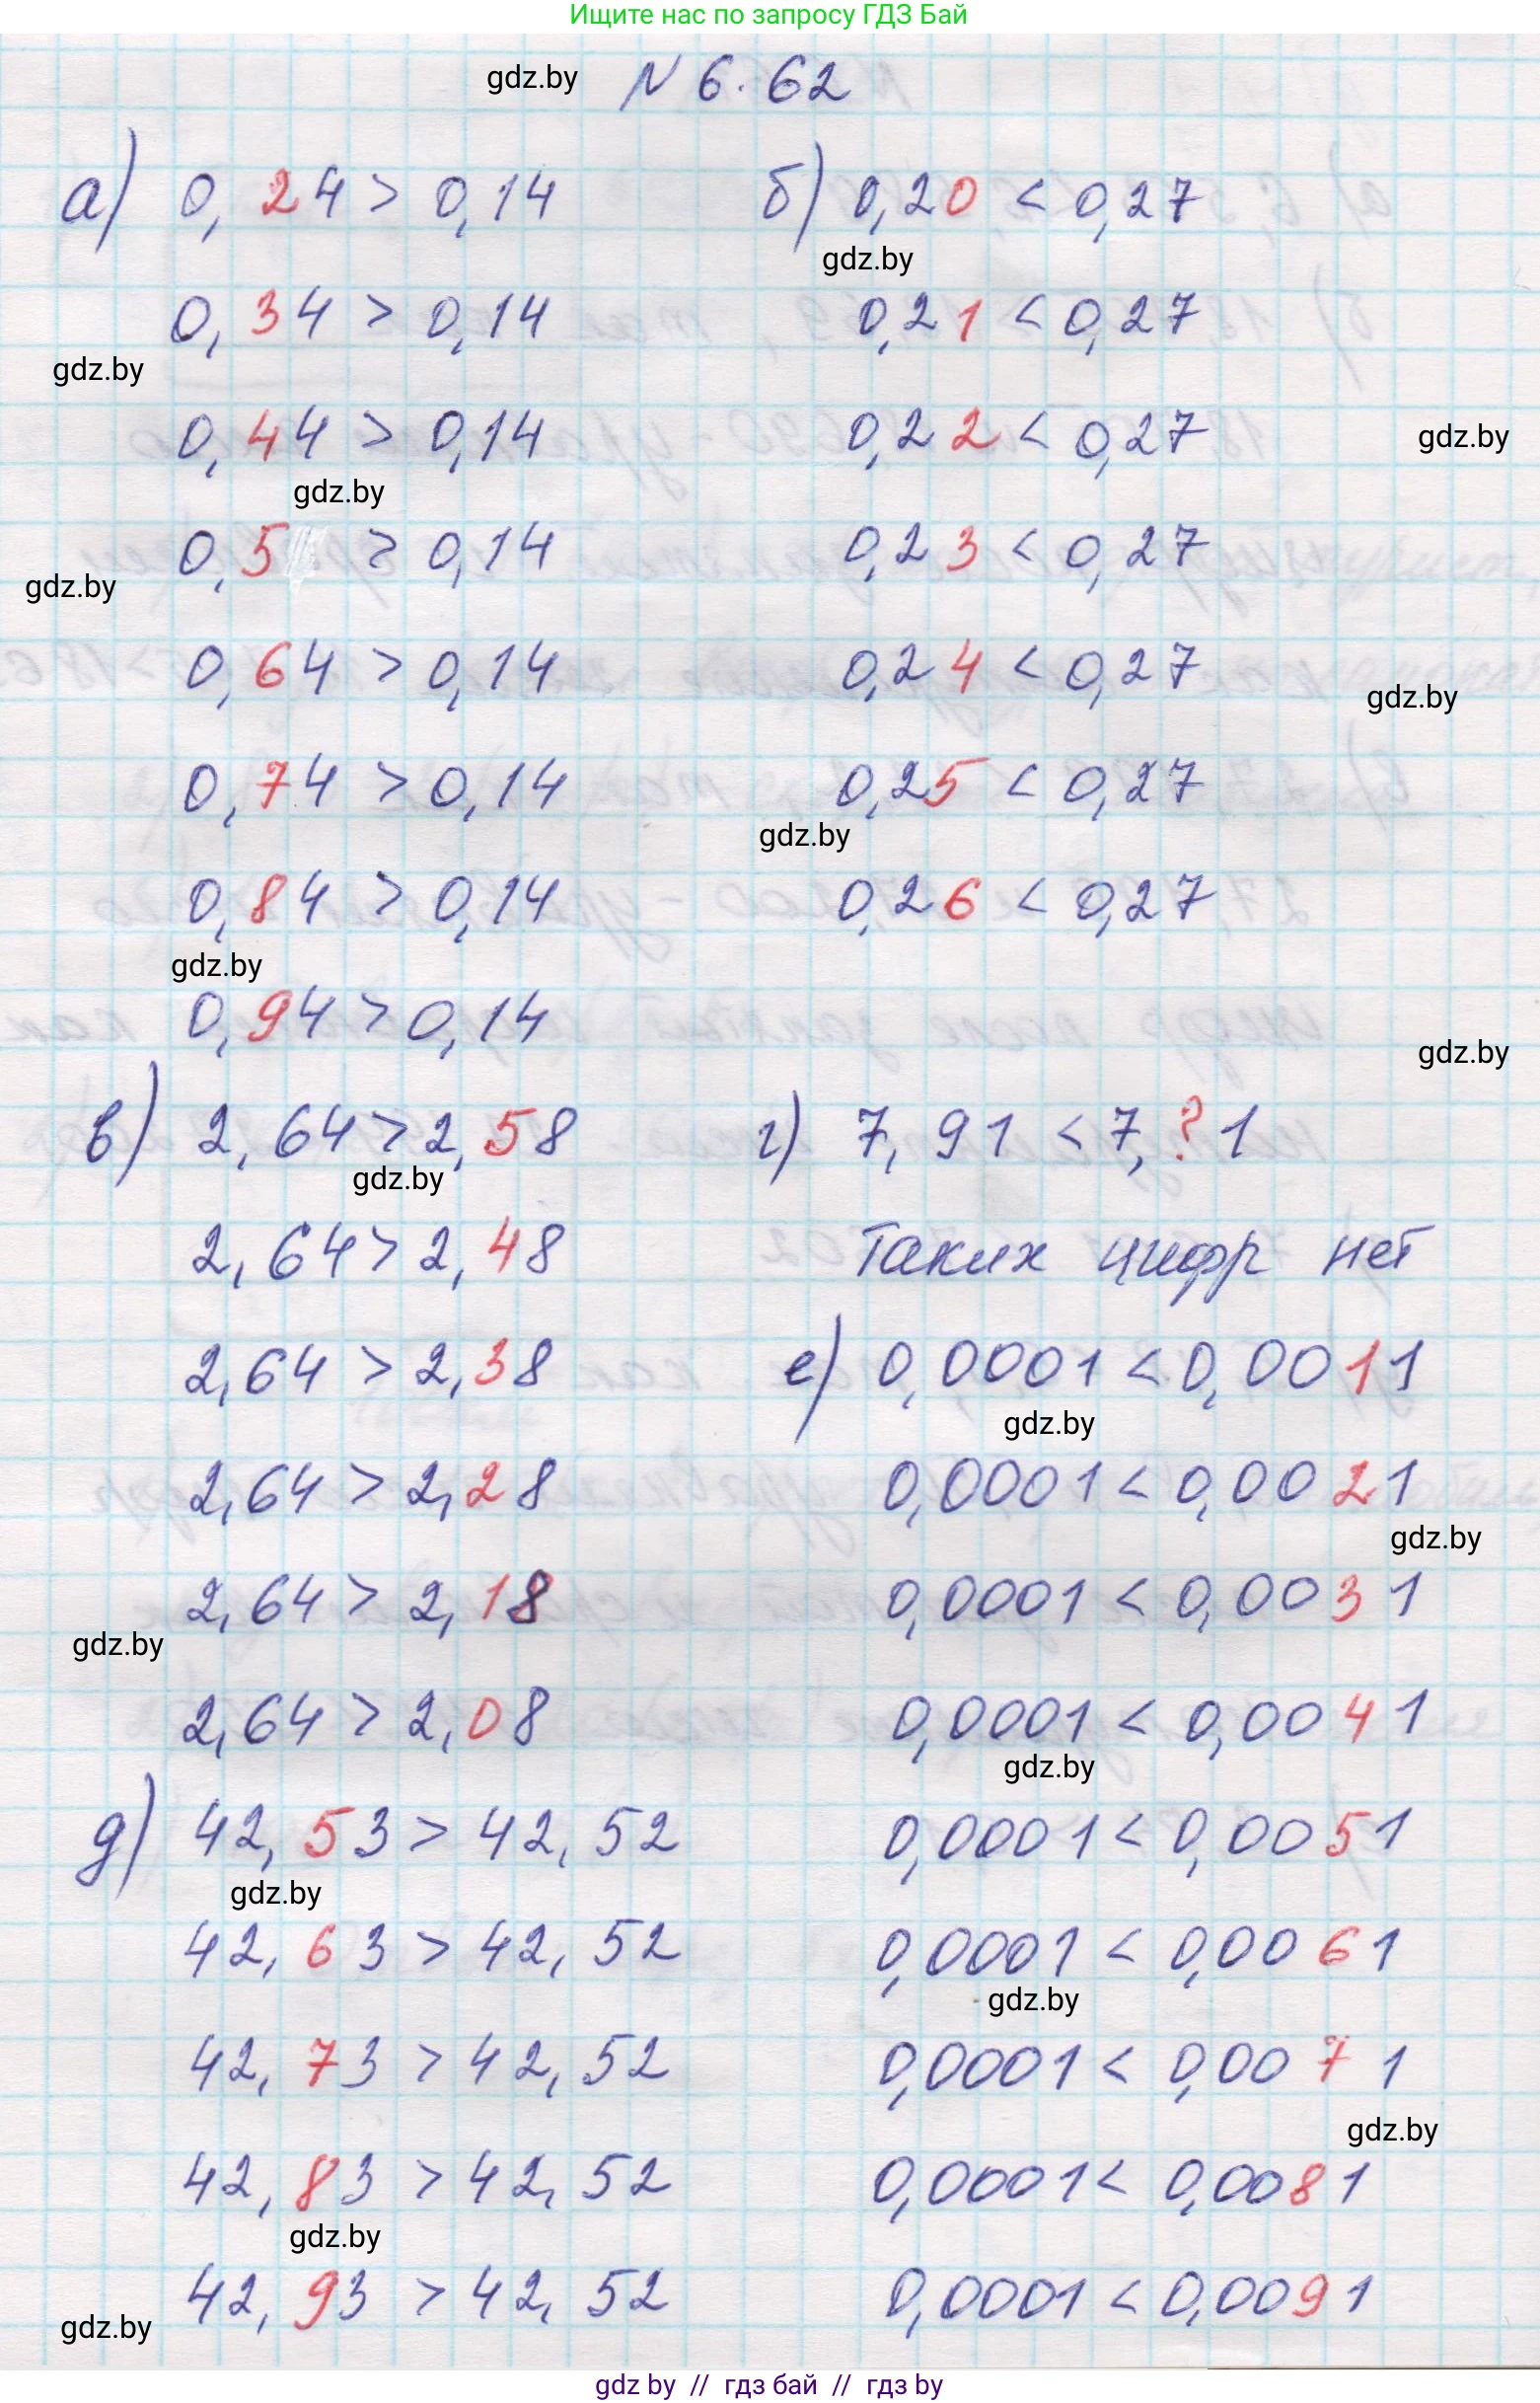 Ищите нас по запросу ГДЗ Бай
gdz.by
N 6.62
а) 0,24 > 0,14
б) 0,20 < 0,27
gdz.by
0,34 > 0,14
0,21 < 0,27
gdz.by
0,44 > 0,14
0,22 < 0,27
gdz.by
gdz.by
0,5 > 0,14
0,23 < 0,27
gdz.by
0,64 > 0,14
0,24 < 0,27
gdz.by
0,74 > 0,14
0,25 < 0,27
gdz.by
0,84 > 0,14
0,26 < 0,27
gdz.by
0,94 > 0,14
gdz.by
в) 2,64 > 2,58
г) 7,91 < 7,?1
gdz.by
2,64 > 2,48
Таких цифр нет
2,64 > 2,38
е) 0,0001 < 0,0011
gdz.by
2,64 > 2,28
0,0001 < 0,0021
gdz.by
2,64 > 2,18
0,0001 < 0,0031
gdz.by
2,64 > 2,08
0,0001 < 0,0041
gdz.by
д) 42,53 > 42,52
0,0001 < 0,0051
gdz.by
42,63 > 42,52
0,0001 < 0,0061
gdz.by
42,73 > 42,52
0,0001 < 0,0071
gdz.by
42,83 > 42,52
0,0001 < 0,0081
gdz.by
42,93 > 42,52
0,0001 < 0,0091
gdz.by
gdz by // гдз бай // гдз by